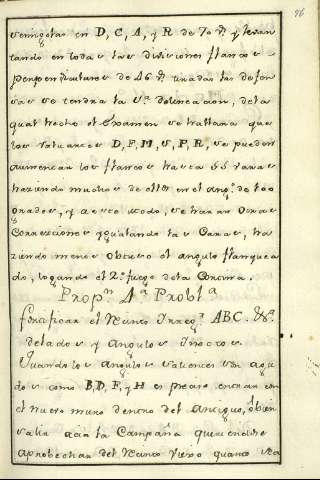 96
semigolas en D, C, A, y R de 70 vs. y levan
tando en todas las divisiones flancos
perpendiculares de 46 vs. tiradas las defen
sas se tendra la 5a. delineacion, de la
qual hecho el examen se hallara que
los valuartes D, F, M, S, P, R, se pueden
aumentar los flancos hasta 55 varas
haziendo muchos de ellos en el ang.o de 100
grados, y a este modo, se haran otras
Connexiones yqualando las Caras, ha
ziendo menos obtuso el angulo flanquea
do, logando el 2.o fuego dela Cortina.
Propn. 4a Probla
fortificar el Recinto Irreg.r ABC. &a.
de lados y Angulos Inxtos.
Quando los Angulos salientes son agu
dos como B, D, F, y H es preciso entrar con
el nuevo muro dentro del Antiguo, ô bien
salir acia la Campaña queriendose
aprobechar del Recinto viexo quanto sea